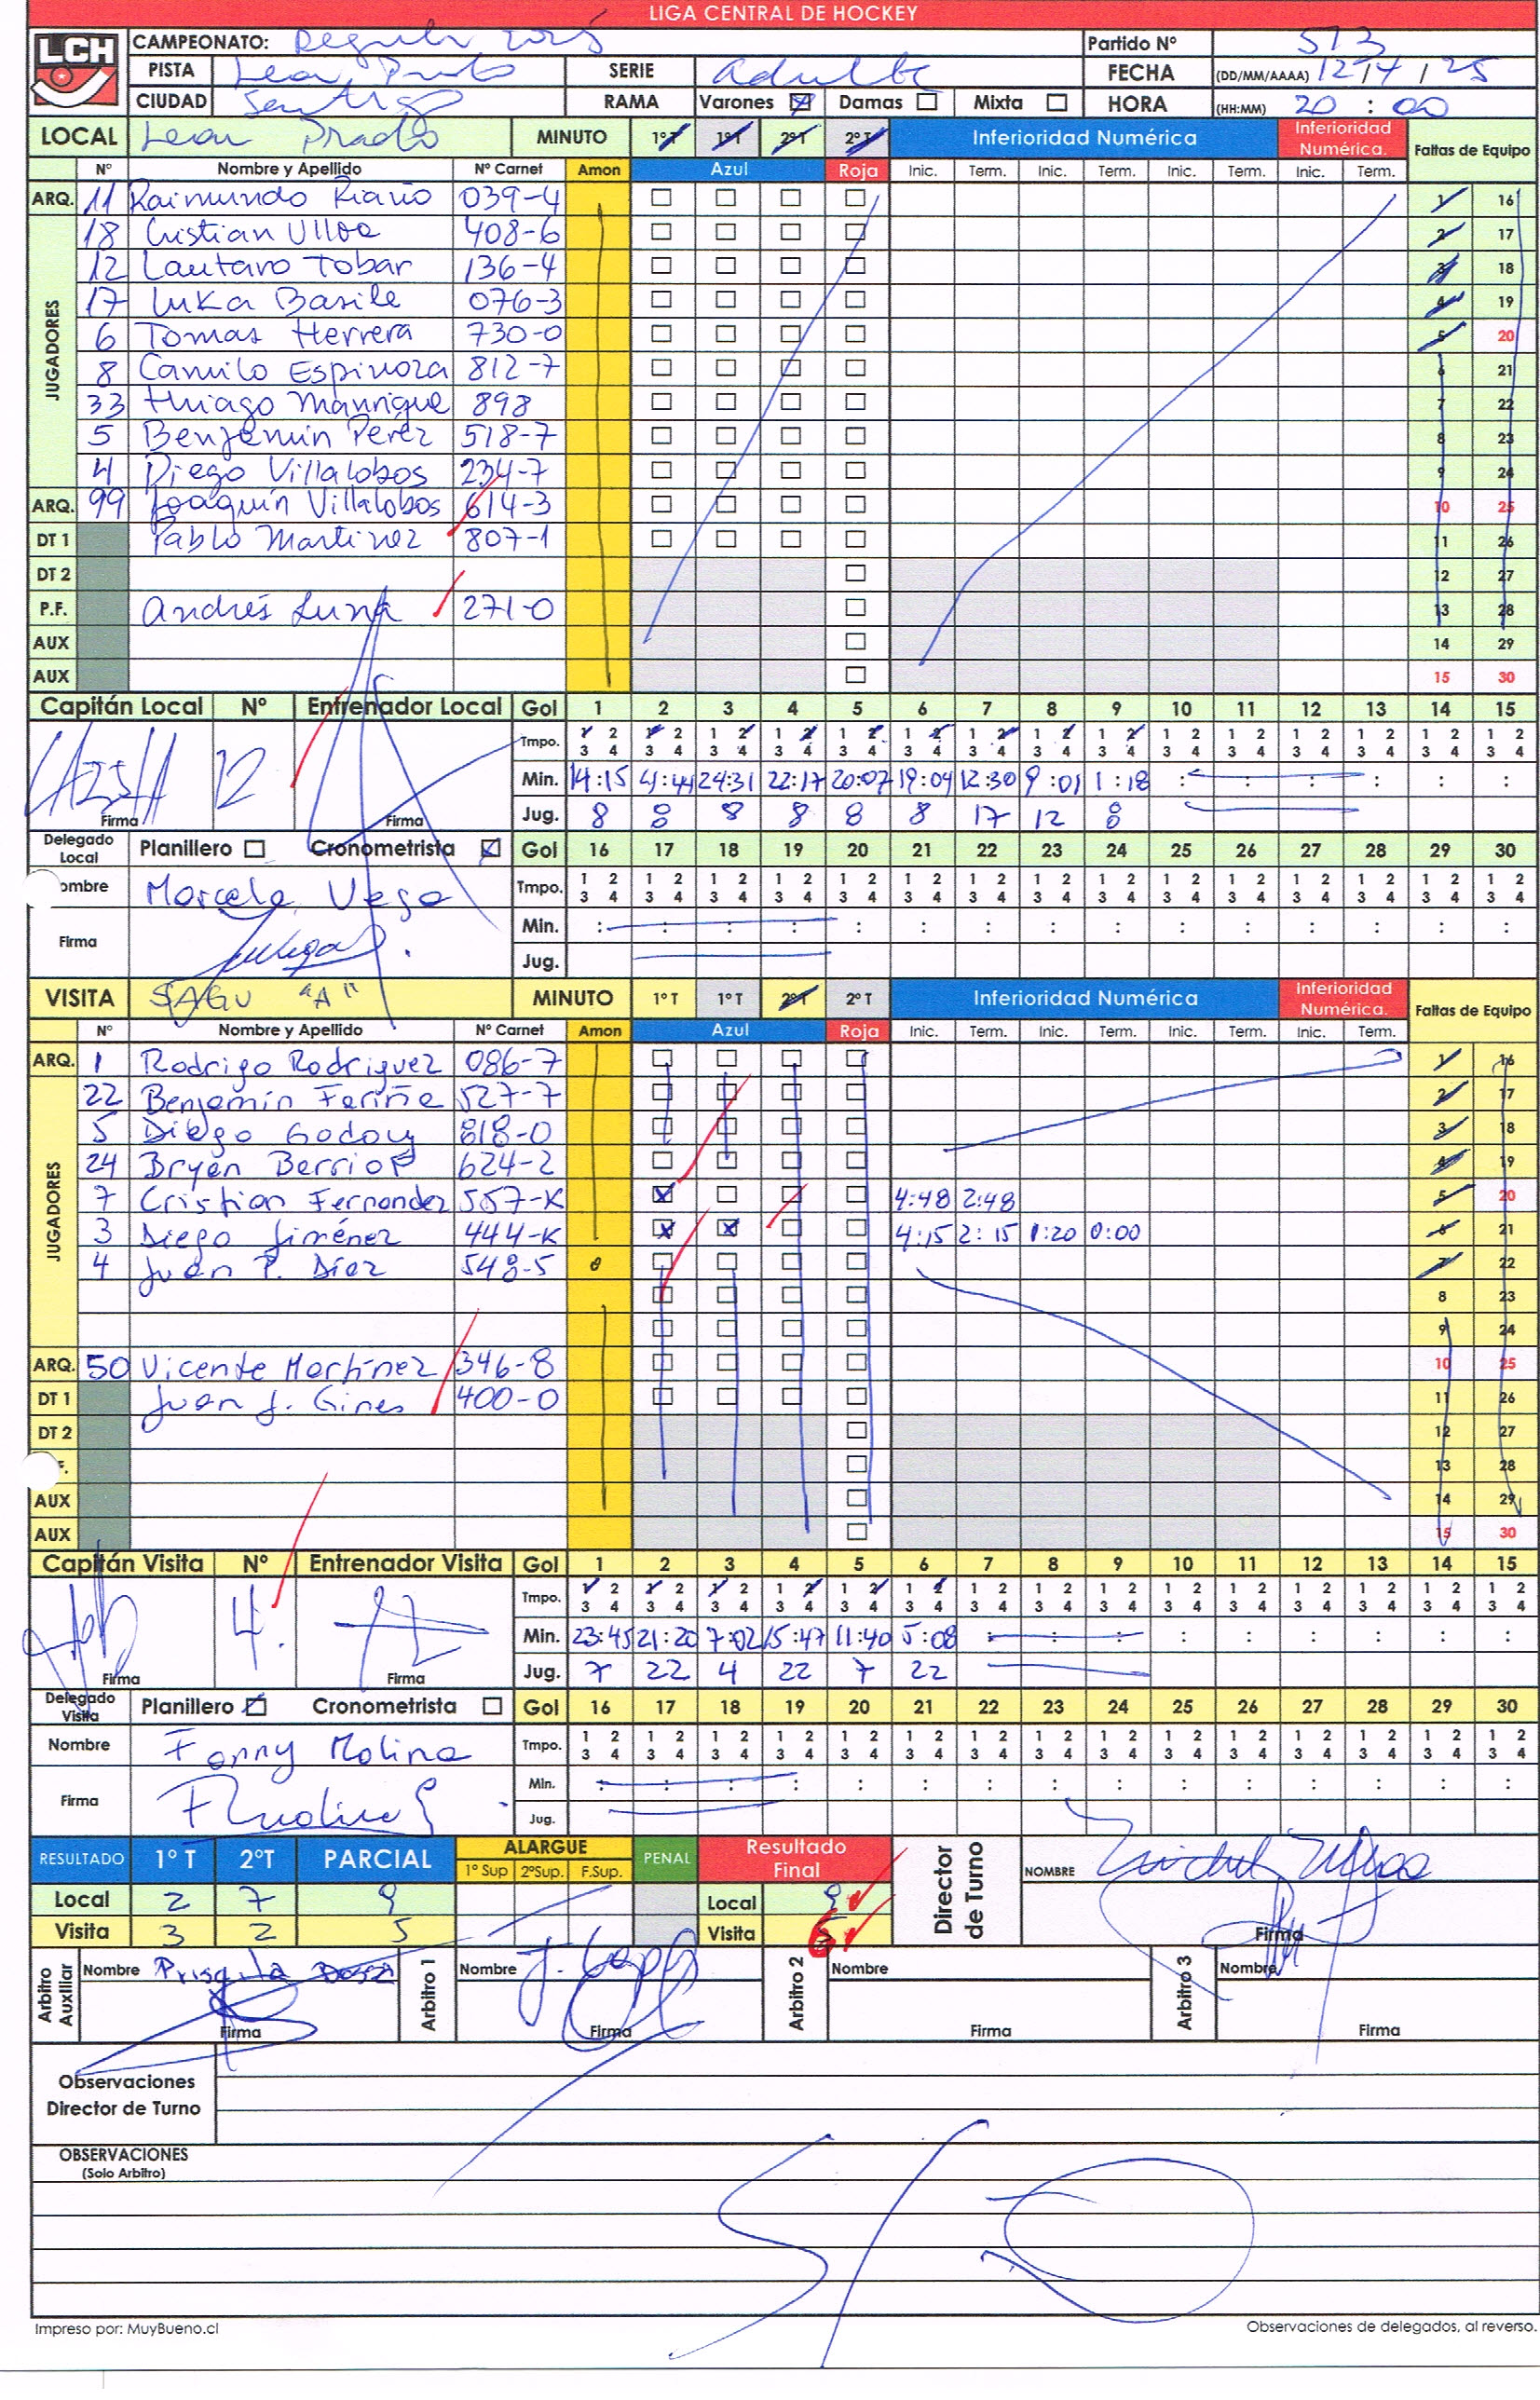 LIGA CENTRAL DE HOCKEY
LCH
CAMPEONATO: Regular 2025 Partido Nº 513
PISTA Leon Prado SERIE Adulta FECHA (DD/MM/AAAA) 12/4/25
CIUDAD Santiago RAMA Varones Damas Mixta HORA (HH:MM) 20:00
LOCAL Leon Prado MINUTO 1ºT 1ºT 2ºT 2ºT Inferioridad Numérica Inferioridad Numérica. Faltas de Equipo
Nº Nombre y Apellido Nº Carnet Amon Azul Roja Inic. Term. Inic. Term. Inic. Term. Inic. Term.
JUGADORES
ARQ. 11 Raimundo Riaño 039-4 1 16
18 Cristian Ulloa 408-6 2 17
12 Lautaro Tobar 136-4 3 18
17 Luka Basile 076-3 4 19
6 Tomas Herrera 730-0 5 20
8 Camilo Espinoza 812-7 6 21
33 Thiago Manrique 898 7 22
5 Benjamin Perez 518-7 8 23
4 Diego Villalobos 234-7 9 24
ARQ. 99 Joaquín Villalobos 614-3 10 25
DT 1 Pablo Martinez 807-1 11 26
DT 2 12 27
P.F. Andrés Luna 271-0 13 28
AUX 14 29
AUX 15 30
Capitán Local Nº Entrenador Local Gol 1 2 3 4 5 6 7 8 9 10 11 12 13 14 15
12 Tmpo. 1 2 3 4 1 2 3 4 1 2 3 4 1 2 3 4 1 2 3 4 1 2 3 4 1 2 3 4 1 2 3 4 1 2 3 4 1 2 3 4 1 2 3 4 1 2 3 4 1 2 3 4 1 2 3 4 1 2 3 4
Min. 14:15 4:44 24:31 22:17 20:07 19:09 12:30 9:01 1:18 : : : : : :
Firma Firma Jug. 8 8 8 8 8 8 17 12 8
Delegado Local Planillero Cronometrista Gol 16 17 18 19 20 21 22 23 24 25 26 27 28 29 30
ombre Marcela Vega Tmpo. 1 2 3 4 1 2 3 4 1 2 3 4 1 2 3 4 1 2 3 4 1 2 3 4 1 2 3 4 1 2 3 4 1 2 3 4 1 2 3 4 1 2 3 4 1 2 3 4 1 2 3 4 1 2 3 4 1 2 3 4
Firma Min. : : : : : : : : : : : : : : :
Jug.
VISITA SAGU "A" MINUTO 1ºT 1ºT 2ºT 2ºT Inferioridad Numérica Inferioridad Numérica. Faltas de Equipo
Nº Nombre y Apellido Nº Carnet Amon Azul Roja Inic. Term. Inic. Term. Inic. Term. Inic. Term.
JUGADORES
ARQ. 1 Rodrigo Rodriguez 086-7 1 16
22 Benjamín Fariña 527-7 2 17
5 Diego Godoy 818-0 3 18
24 Bryan Berrios 624-2 4 19
7 Cristian Fernandez 557-K 4:48 2:48 5 20
3 Diego Jiménez 444-K 4:15 2:15 1:20 0:00 6 21
4 Juan P. Diaz 548-5 7 22
8 23
9 24
ARQ. 50 Vicente Martínez 346-8 10 25
DT 1 Juan J. Gines 400-0 11 26
DT 2 12 27
F. 13 28
AUX 14 29
AUX 15 30
Capitán Visita Nº Entrenador Visita Gol 1 2 3 4 5 6 7 8 9 10 11 12 13 14 15
4. Tmpo. 1 2 3 4 1 2 3 4 1 2 3 4 1 2 3 4 1 2 3 4 1 2 3 4 1 2 3 4 1 2 3 4 1 2 3 4 1 2 3 4 1 2 3 4 1 2 3 4 1 2 3 4 1 2 3 4 1 2 3 4
Min. 23:45 21:20 7:02 15:47 11:40 5:08 : : : : : : : : :
Firma Firma Jug. 7 22 4 22 7 22
Delegado Visita Planillero Cronometrista Gol 16 17 18 19 20 21 22 23 24 25 26 27 28 29 30
Nombre Fanny Molina Tmpo. 1 2 3 4 1 2 3 4 1 2 3 4 1 2 3 4 1 2 3 4 1 2 3 4 1 2 3 4 1 2 3 4 1 2 3 4 1 2 3 4 1 2 3 4 1 2 3 4 1 2 3 4 1 2 3 4 1 2 3 4
Firma FMolina Min. : : : : : : : : : : : : : : :
Jug.
RESULTADO 1º T 2ºT PARCIAL ALARGUE 1º Sup 2ºSup. F.Sup. PENAL Resultado Final Director de Turno NOMBRE
Local 2 7 9 Local 9
Visita 3 2 5 Visita 6 Firma
Arbitro Auxiliar Nombre Priscila Arbitro 1 Nombre J. Arbitro 2 Nombre Arbitro 3 Nombre
Firma Firma Firma Firma
Observaciones
Director de Turno
OBSERVACIONES
(Solo Arbitro)
S/O
Impreso por: MuyBueno.cl Observaciones de delegados, al reverso.